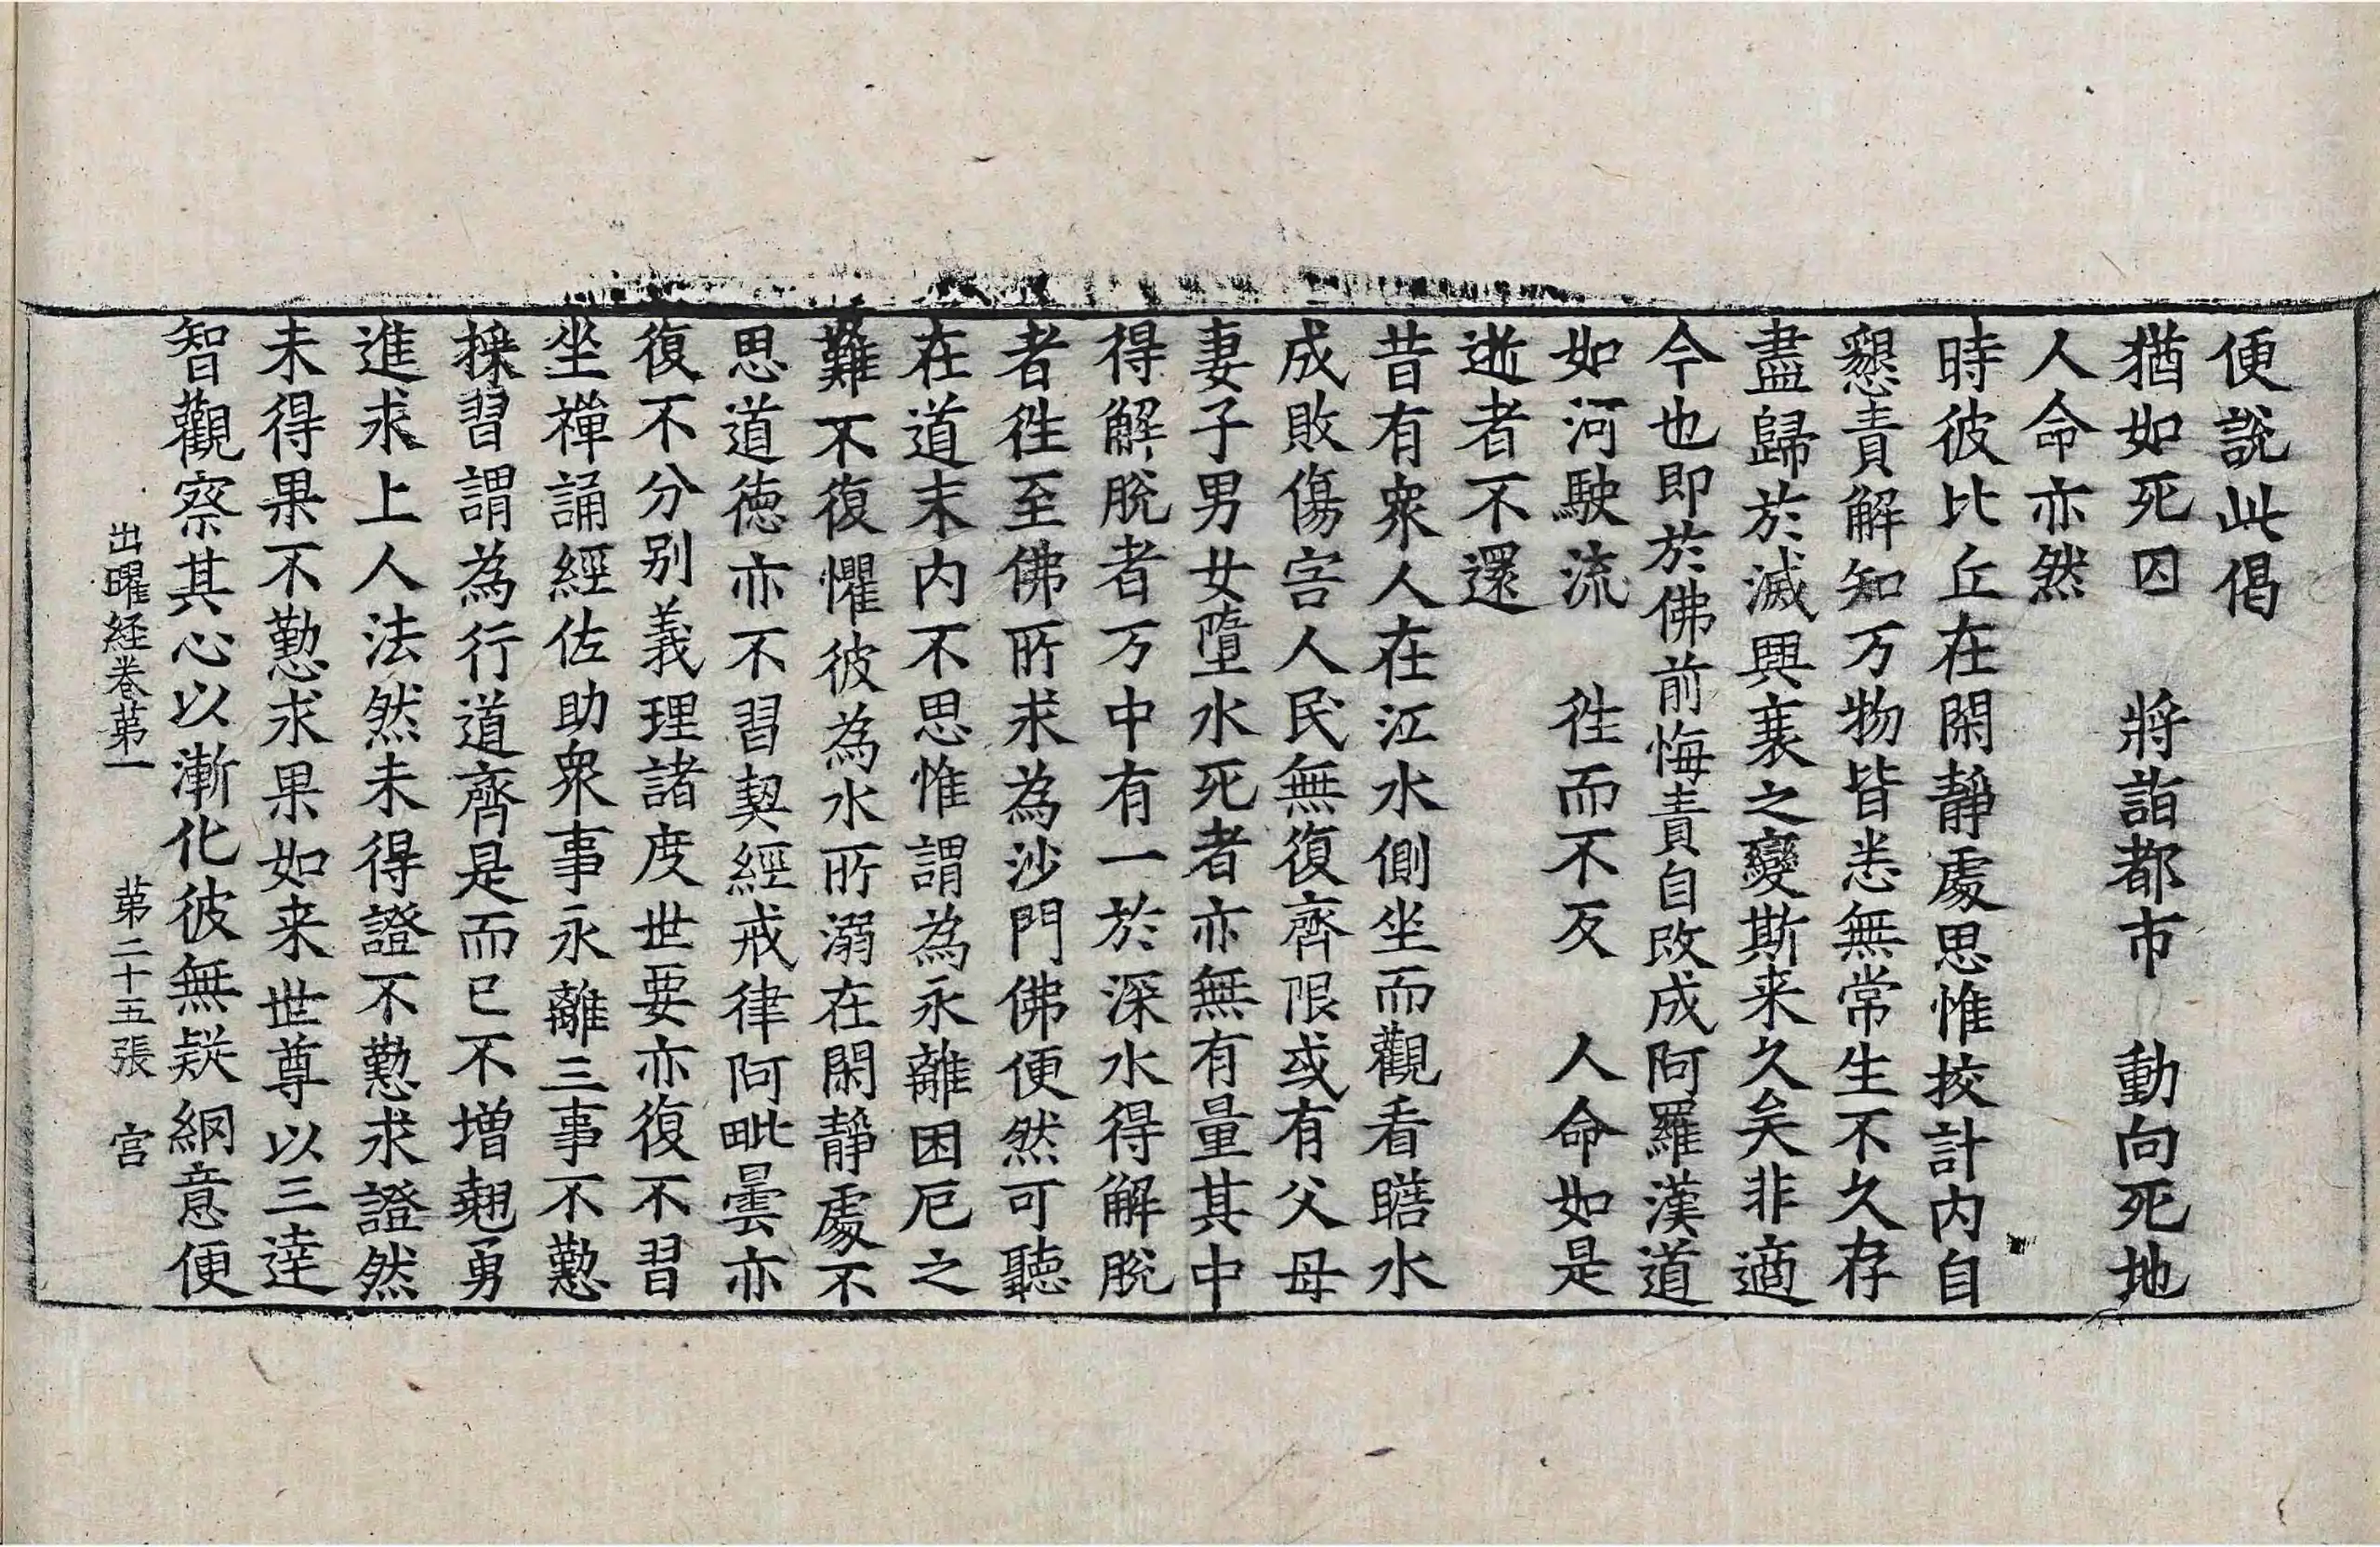 便說此偈
猶如死囚　將詣都市　動向死地
人命亦然
時彼比丘在閑靜處思惟挍計内自
懇責解知万物皆悉無常生不久存
盡歸於滅興衰之變斯来久矣非適
今也即於佛前悔責自改成阿羅漢道
如河駛流　徃而不反　人命如是
逝者不還
昔有衆人在江水側坐而觀看瞻水
成敗傷害人民無復齊限或有父母
妻子男女墮水死者亦無有量其中
得解脫者万中有一於深水得解脫
者徃至佛所求為沙門佛便然可聽
在道末内不思惟謂為永離困厄之
難不復懼彼為水所溺在閑靜處不
思道徳亦不習契經戒律阿毗曇亦
復不分别義理諸度世要亦復不習
坐禪誦經佐助衆事永離三事不懃
採習謂為行道齊是而已不增翹勇
進求上人法然未得證不懃求證然
未得果不懃求果如来世尊以三達
智觀察其心以漸化彼無疑網意便
出曜経卷苐一　苐二十五張　宫